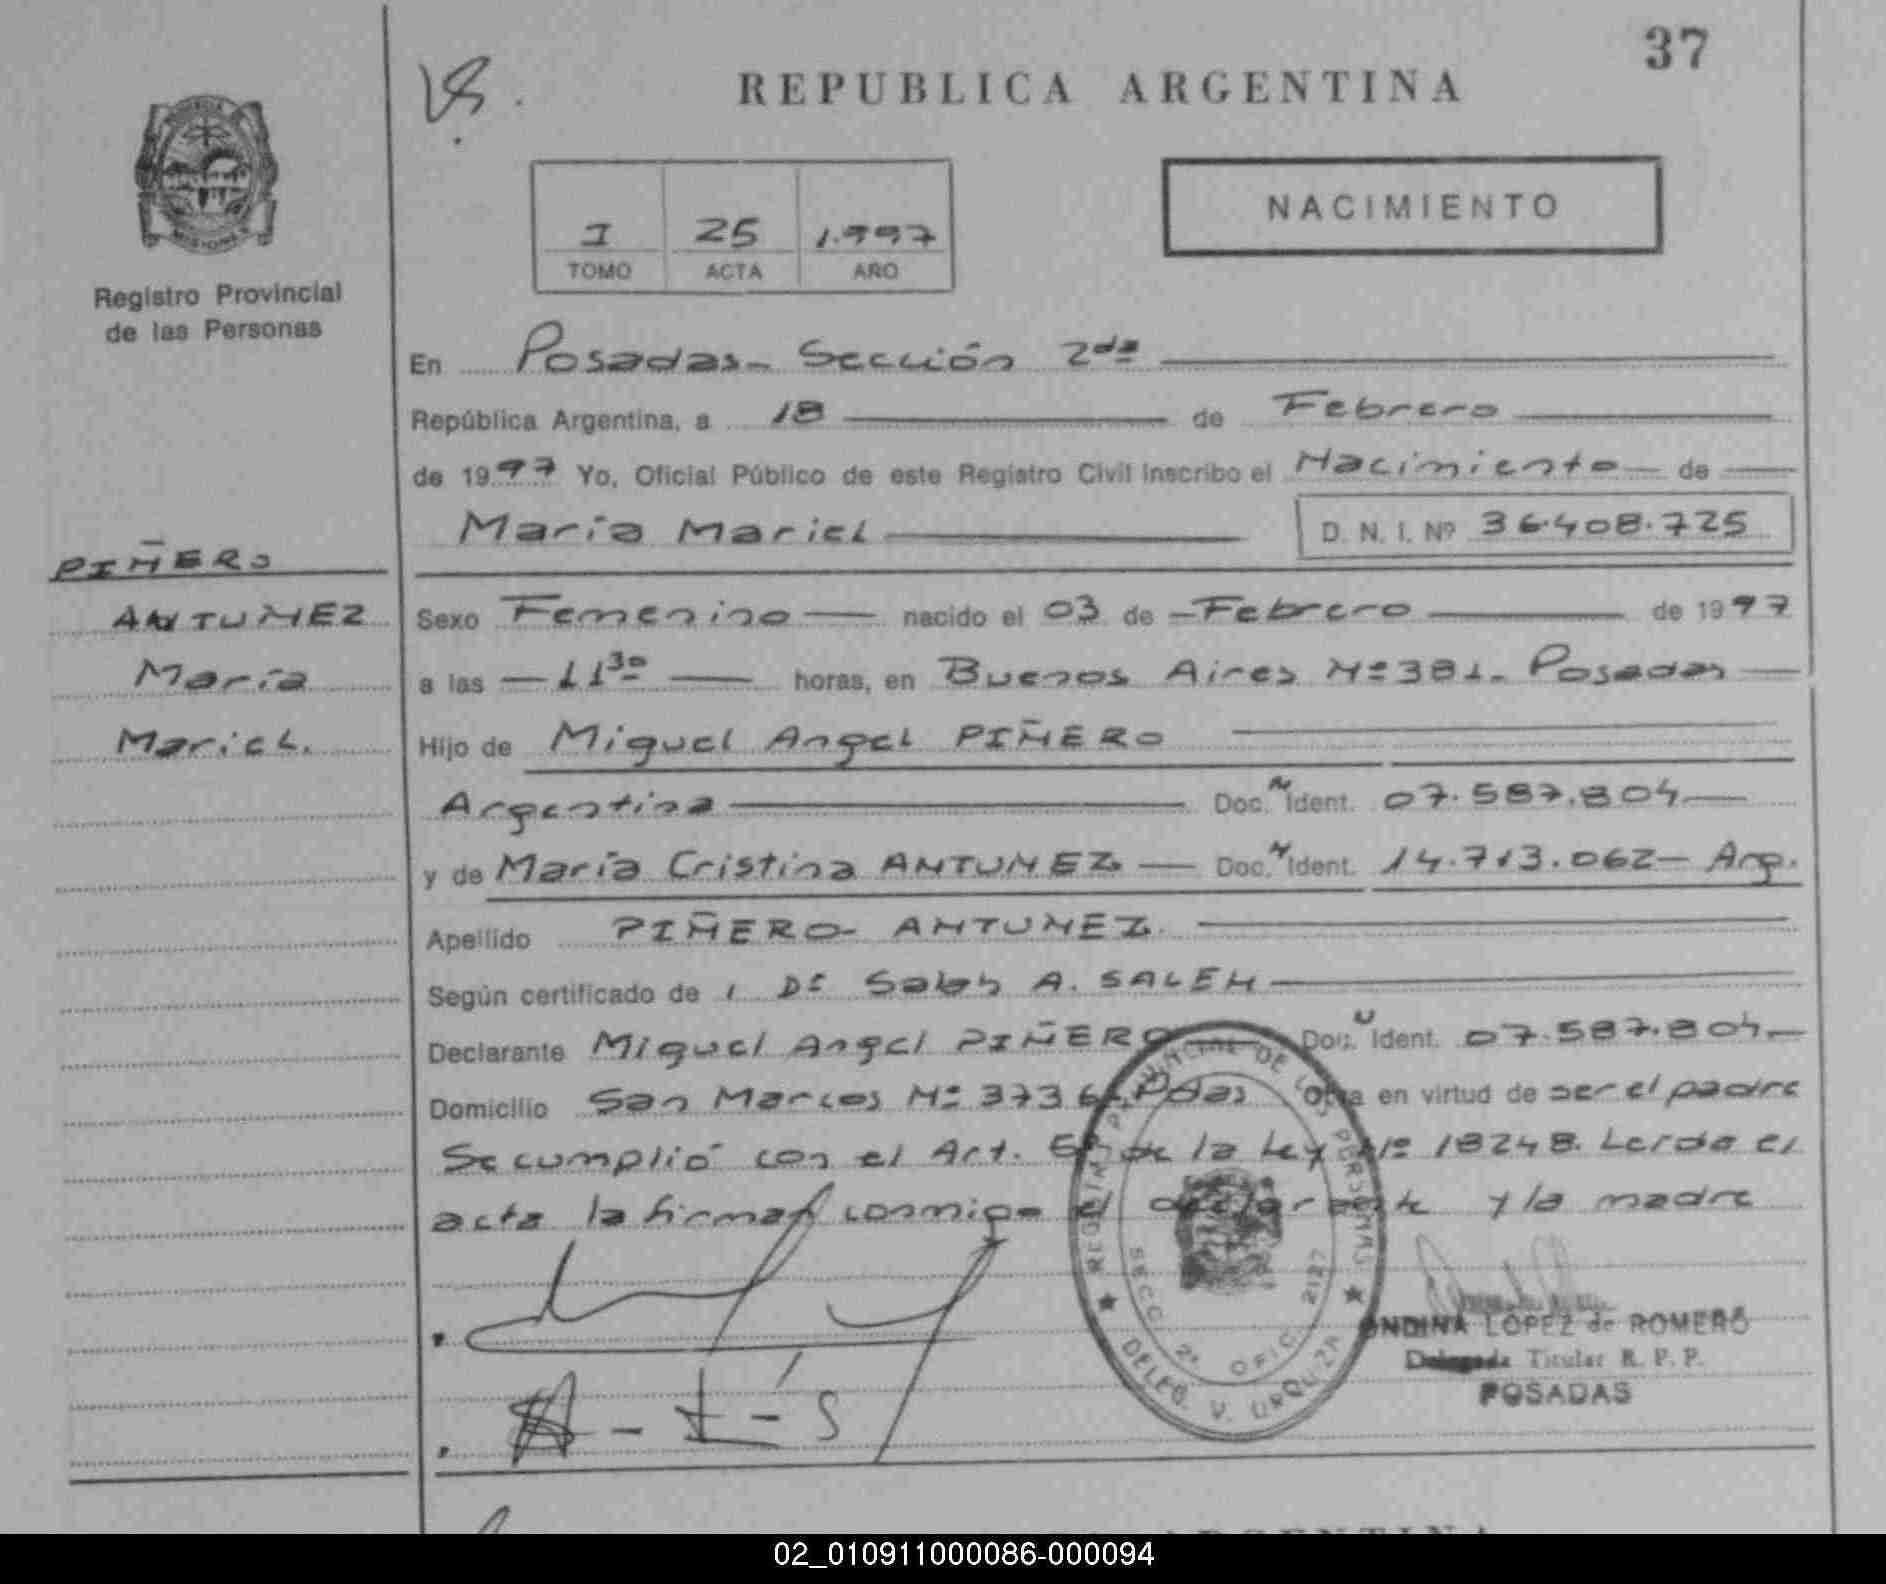 37
REPUBLICA ARGENTINA
NACIMIENTO
I 25 1.997
TOMO ACTA AÑO
MISIONES
Registro Provincial
de las Personas
En Posadas - Sección 2da
República Argentina, a 18 de Febrero
de 1997 Yo, Oficial Público de este Registro Civil inscribo el Nacimiento de
María Mariel D. N. I. Nº 36.408.725
PIÑERO
ANTUNEZ
María
Mariel.
Sexo Femenino nacido el 03 de Febrero de 1997
a las 11 30 horas, en Buenos Aires Nº 381 - Posadas
Hijo de Miguel Angel PIÑERO
Argentina Doc. N Ident. 07.587.804
y de María Cristina ANTUNEZ Doc. N Ident. 14.713.062 - Arg.
Apellido PIÑERO - ANTUNEZ.
Según certificado de Dr A. SALEH
Declarante Miguel Angel PIÑERO Doc. Ident. 07.587.804
Domicilio San Marcos Nº 3736 - Pdas Obra en virtud de ser el padre
Se cumplió con el Art. de la Ley Nº 18248. Leída el
acta la firman conmigo el declarante y la madre
REGISTRO PROVINCIAL DE LAS PERSONAS
SECC. 2ª OFIC. 2127
DELEG. V. URQUIZA
ONDINA LOPEZ de ROMERO
Delegada Titular R. P. P.
POSADAS
ARGENTINA
02_010911000086-000094